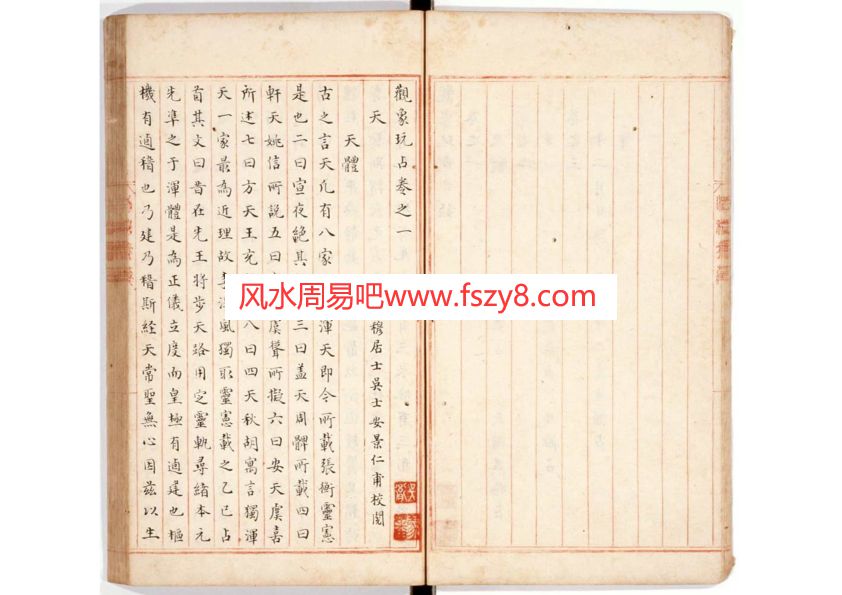 觀象玩占卷之一
天 穆居士吳士安景仁甫校閱
天體
古之言天凡有八家 渾天即今所載張衡靈憲
是也二曰宣夜絕其 三曰蓋天周髀所載四曰
軒天姚信所說五曰 虞聳所擬六曰安天虞喜
所述七曰方天王充 八曰四天秋胡寓言獨渾
天一家最為近理故 風獨取靈憲載之乙巳占
首其文曰昔在先王將步天路用定靈軌尋緒本元
先準之于渾體是為正儀立度而皇極有逌建也樞
機有逌稽也乃建乃稽斯経天常聖無心因茲以生
风水周易吧www.fszy8.com